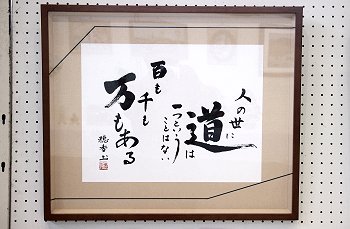 人の世に
道は
一つということはない
百も
千も
万もある
穂香上